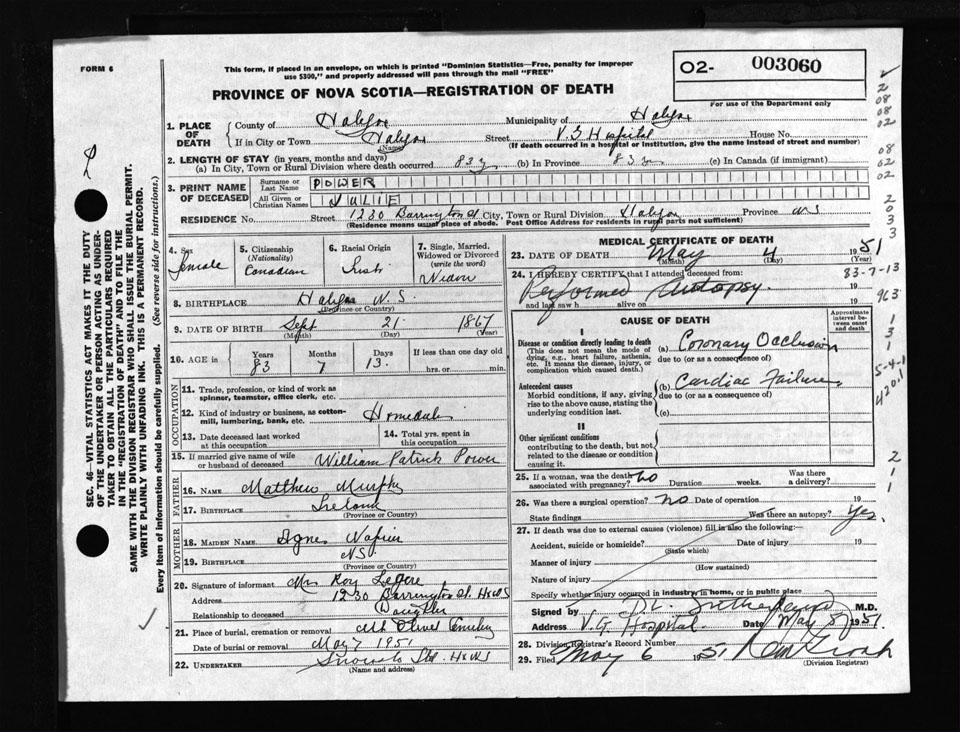 FORM 6
This form, if placed in an envelope, on which is printed "Dominion Statistics—Free, penalty for improper
use $300," and properly addressed will pass through the mail "FREE"
O2- 003060
For use of the Department only
PROVINCE OF NOVA SCOTIA—REGISTRATION OF DEATH
1. PLACE OF DEATH { County of Halifax Municipality of Halifax
If in City or Town Halifax (Name) Street V.G Hospital House No.
(If death occurred in a hospital or institution, give the name instead of street and number)
2. LENGTH OF STAY (in years, months and days)
(a) In City, Town or Rural Division where death occurred 83 y (b) In Province 83 y (c) In Canada (if immigrant)
3. PRINT NAME OF DECEASED { Surname or Last Name POWER
All Given or Christian Names JULIE
RESIDENCE No. Street 1230 Barrington St City, Town or Rural Division Halifax Province N.S
(Residence means usual place of abode. Post Office Address for residents in rural parts not sufficient)
4. Sex Female
5. Citizenship (Nationality) Canadian
6. Racial Origin Irish
7. Single, Married, Widowed or Divorced (write the word) Widow
8. BIRTHPLACE Halifax N.S.
(Province or Country)
9. DATE OF BIRTH Sept 21 1867
(Month) (Day) (Year)
10. AGE in Years 83 Months 7 Days 13 If less than one day old
hrs. or min.
OCCUPATION
11. Trade, profession, or kind of work as
spinner, teamster, office clerk, etc.
12. Kind of industry or business, as cotton-
mill, lumbering, bank, etc.
13. Date deceased last worked
at this occupation
14. Total yrs. spent in
this occupation
15. If married give name of wife
or husband of deceased William Patrick Power
FATHER
16. NAME Matthew Murphy
17. BIRTHPLACE Ireland
(Province or Country)
MOTHER
18. MAIDEN NAME Agnes Napier
19. BIRTHPLACE N.S.
(Province or Country)
20. Signature of informant Mrs Roy
Address 1230 Barrington St.
Relationship to deceased Daughter
21. Place of burial, cremation or removal Mt Olivet
Date of burial or removal May 7 1951
22. UNDERTAKER Snow &
(Name and address)
MEDICAL CERTIFICATE OF DEATH
23. DATE OF DEATH May 4 1951
(Month) (Day) (Year)
24. I HEREBY CERTIFY that I attended deceased from: 19
Performed Autopsy.
and last saw h alive on 19
CAUSE OF DEATH
Approximate interval between onset and death
I
Disease or condition directly leading to death
(This does not mean the mode of
dying, e.g., heart failure, asthenia,
etc. It means the disease, injury, or
complication which caused death.)
(a) Coronary Occlusion
due to (or as a consequence of)
Antecedent causes
Morbid conditions, if any, giving
rise to the above cause, stating the
underlying condition last.
(b) Cardiac Failure
due to (or as a consequence of)
(c)
II
Other significant conditions
contributing to the death, but not
related to the disease or condition
causing it.
25. If a woman, was the death
associated with pregnancy? No Duration weeks. Was there
a delivery?
26. Was there a surgical operation? No Date of operation 19
State findings Was there an autopsy? Yes.
27. If death was due to external causes (violence) fill in also the following:—
Accident, suicide or homicide? Date of injury 19
(State which)
Manner of injury
(How sustained)
Nature of injury
Specify whether injury occurred in industry, in home, or in public place
Signed by M.D.
Address V.G Hospital. Date May 1951.
28. Division Registrar's Record Number
29. Filed May 6 1951
(Division Registrar)
SEC. 46—VITAL STATISTICS ACT MAKES IT THE DUTY
OF THE UNDERTAKER OR PERSON ACTING AS UNDER-
TAKER TO OBTAIN ALL THE PARTICULARS REQUIRED
IN THE "REGISTRATION OF DEATH" AND TO FILE THE
SAME WITH THE DIVISION REGISTRAR WHO SHALL ISSUE THE BURIAL PERMIT.
WRITE PLAINLY WITH UNFADING INK. THIS IS A PERMANENT RECORD.
Every item of information should be carefully supplied. (See reverse side for instructions.)
2
08
08
02
08
02
02
2
0
3
3
83-7-13
963
1
3
1
5-4-1
420.1
2
1
1